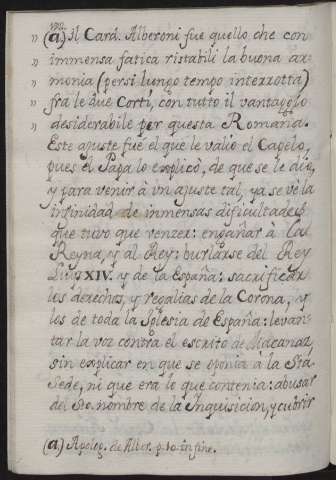 (a) il Card. Alberoni fue quello che con
" immensa fatica ristabili la buona ar-
" monia (persi lungo tempo interrotta)
" frà le due Corti, con tutto il vantagolo
" desiderabile per questa Romaña.
Este ajuste fue el que le valiò el Capelo,
pues el Papa lo explicò, de que se le diò,
y para venir à un ajuste tal, ya se vè la
infinidad de inmensas dificultades
que tuvo que vencer: engañar à la
Reyna, y al Rey: burlarse del Rey
Luis XIV. y de la España: sacrificar
los derechos, y regalias de la Corona, y
los de toda la Iglesia de España: levan-
tar la voz contra el escrito de Macanaz,
sin explicar en que se oponia à la Sta.
Sede, ni que era lo que contenia: abusar
del Sto. nombre de la Inquisicion, y cubrir
(a) Apolog. de Alber. p. 10 in fine.